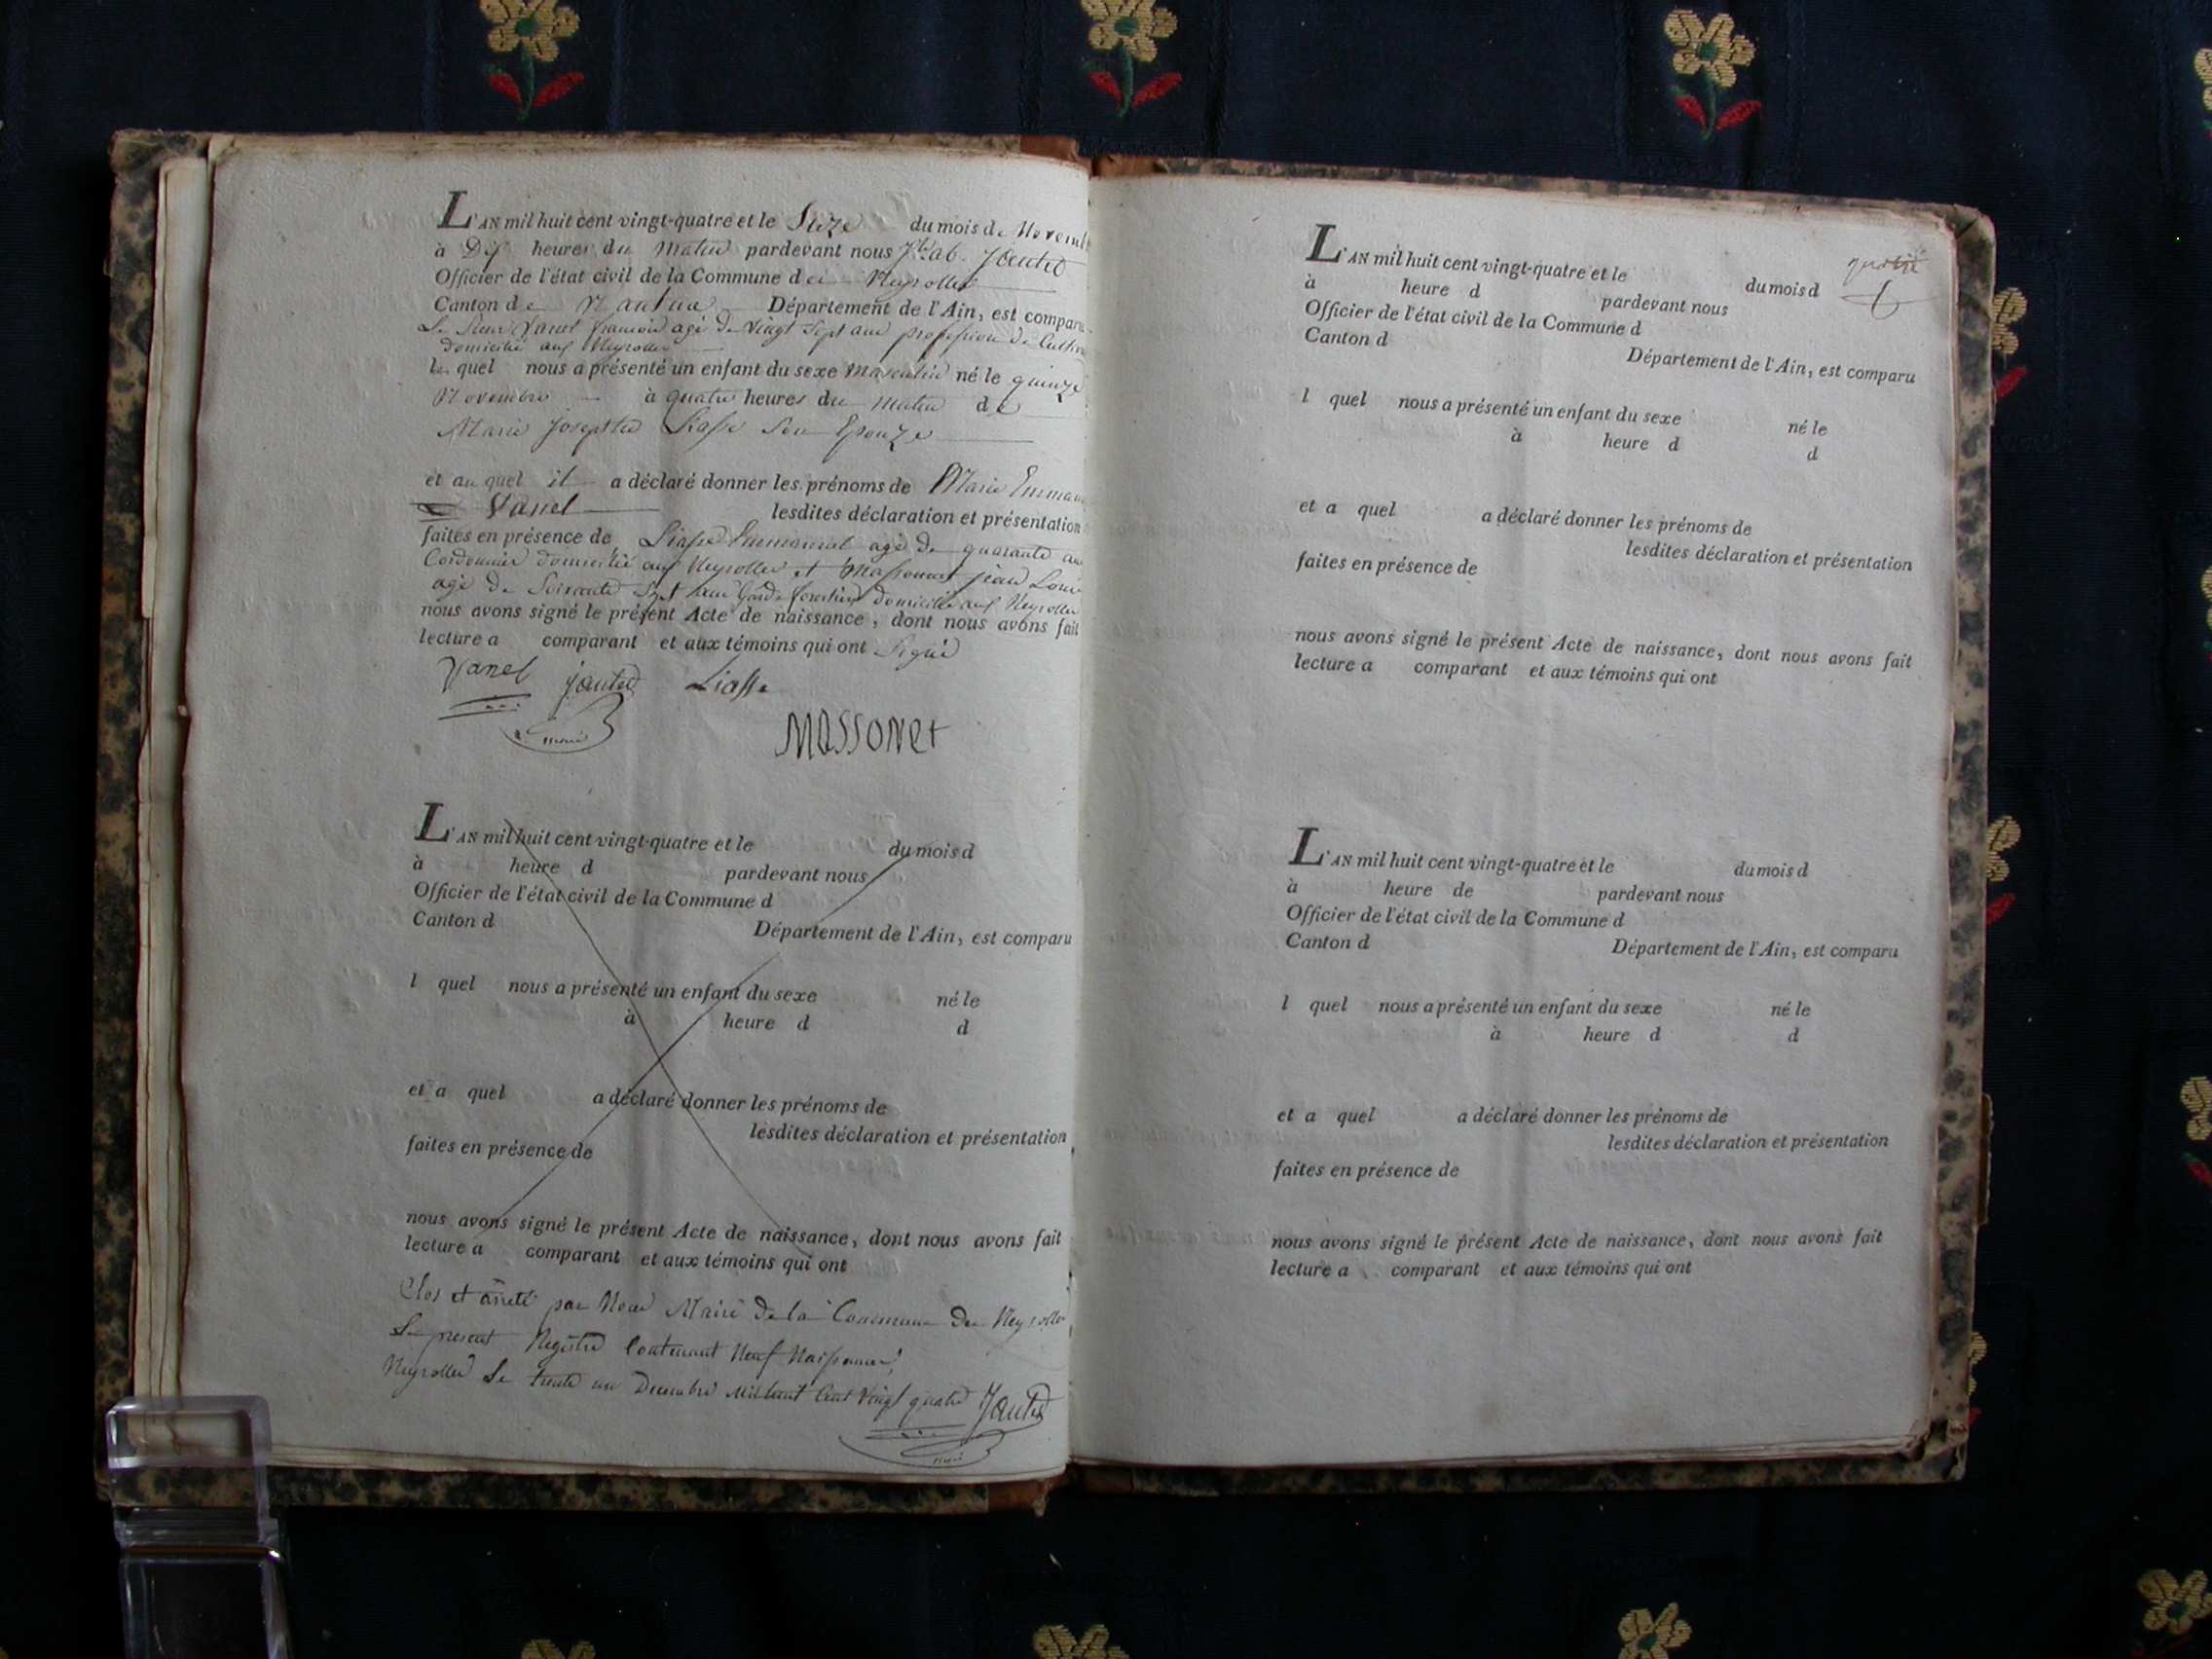 L'AN mil huit cent vingt-quatre et le Seize du mois de Novemb
à Dix heures du Matin pardevant nous
Officier de l'état civil de la Commune des Neyrolles
Canton de Nantua Département de l'Ain, est comparu
Le Sieur Vanel françois agé de vingt Sept ans profession de Cultiv
domicilié aux Neyrolles
le quel nous a présenté un enfant du sexe Masculin né le quinze
Novembre à quatre heures du matin de
Marie Josephte Liasse Son Epouze
et au quel il a déclaré donner les prénoms de Marie Emman
Vanel lesdites déclaration et présentation
faites en présence de Liasse Emmanuel agé de quarante ans
Cordonnier domicilié aux Neyrolles et Massonnet jean Louis
agé de Soixante Sept ans Garde forestier domicilié aux Neyrolles
nous avons signé le présent Acte de naissance, dont nous avons fait
lecture a comparant et aux témoins qui ont Signé
Vanel Jantet Liasse
maire
MASSONET
L'AN mil huit cent vingt-quatre et le du mois d
à heure d pardevant nous
Officier de l'état civil de la Commune d
Canton d Département de l'Ain, est comparu
l quel nous a présenté un enfant du sexe né le
à heure d d
et a quel a déclaré donner les prénoms de
lesdites déclaration et présentation
faites en présence de
nous avons signé le présent Acte de naissance, dont nous avons fait
lecture a comparant et aux témoins qui ont
Clos et arreté par Nous Maire de la Commune des Neyrolles
Le present Registre Contenant Neuf Naissances
Neyrolles Le trente un Decembre Mil huit Cent Vingt quatre Jantet
maire
L'AN mil huit cent vingt-quatre et le du mois d
à heure d pardevant nous
Officier de l'état civil de la Commune d
Canton d Département de l'Ain, est comparu
l quel nous a présenté un enfant du sexe né le
à heure d d
et a quel a déclaré donner les prénoms de
lesdites déclaration et présentation
faites en présence de
nous avons signé le présent Acte de naissance, dont nous avons fait
lecture a comparant et aux témoins qui ont
L'AN mil huit cent vingt-quatre et le du mois d
à heure de pardevant nous
Officier de l'état civil de la Commune d
Canton d Département de l'Ain, est comparu
l quel nous a présenté un enfant du sexe né le
à heure d d
et a quel a déclaré donner les prénoms de
lesdites déclaration et présentation
faites en présence de
nous avons signé le présent Acte de naissance, dont nous avons fait
lecture a comparant et aux témoins qui ont